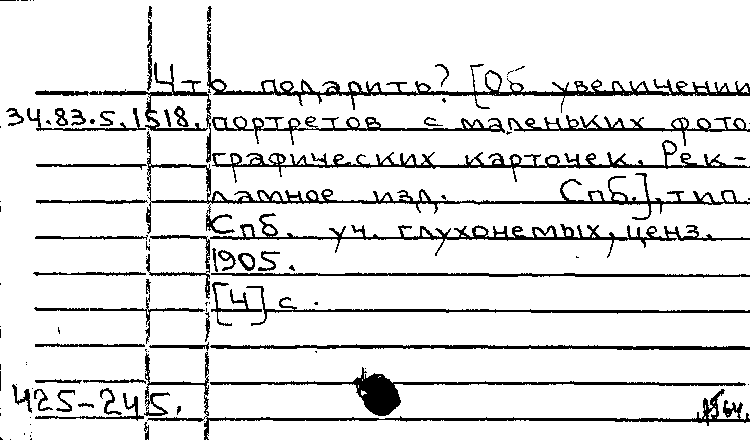 Что подарить? [Об увеличении
34.83.5.1518. портретов с маленьких фото
графических карточек. Рек-
ламное изд. Спб.], тип.
Спб. уч. глухонемых, ценз.
1905.
[4] с.
425-245.